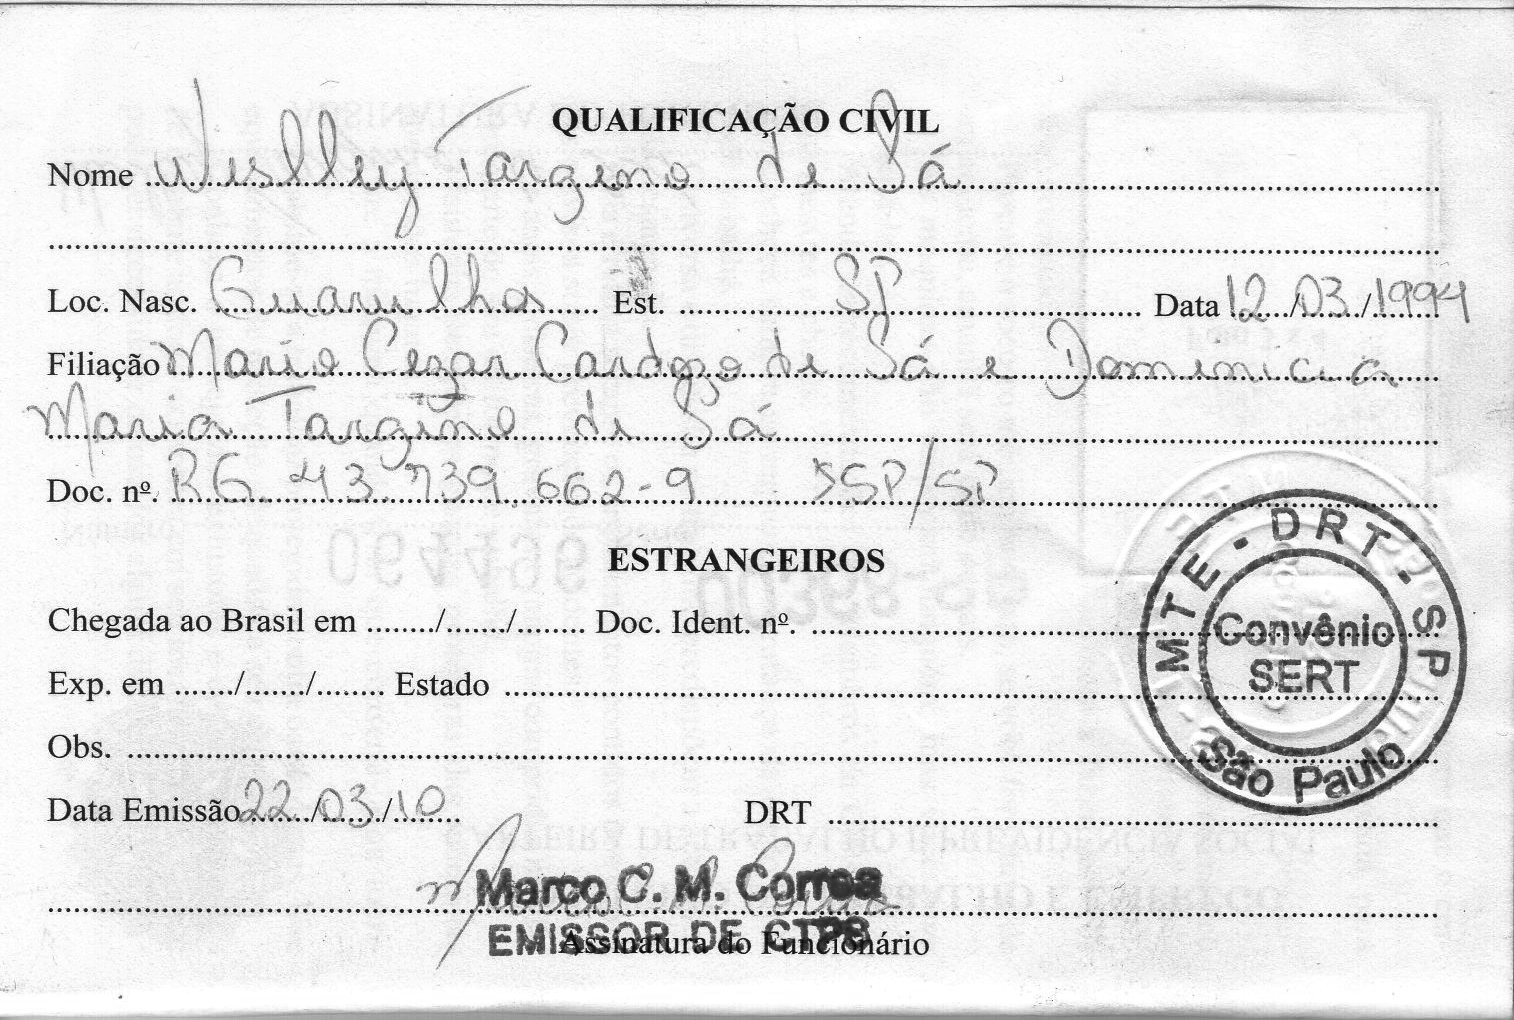 QUALIFICAÇÃO CIVIL
Nome Weslley Targino de Sá
Loc. Nasc. Guarulhos Est. SP Data 12/03/1994
Filiação Mario Cezar Cardozo de Sá e Dominicia
Maria Targino de Sá
Doc. nº. RG. 43.739.662-9 SSP/SP
ESTRANGEIROS
Chegada ao Brasil em ......../......./........ Doc. Ident. nº.
Exp. em ......./......./........ Estado
Obs.
Data Emissão 22/03/10 DRT
MTE - DRT - SP
Convênio
SERT
São Paulo
Marco C. M. Correa
EMISSOR DE CTPS
Assinatura do Funcionário
064496
00368-SP